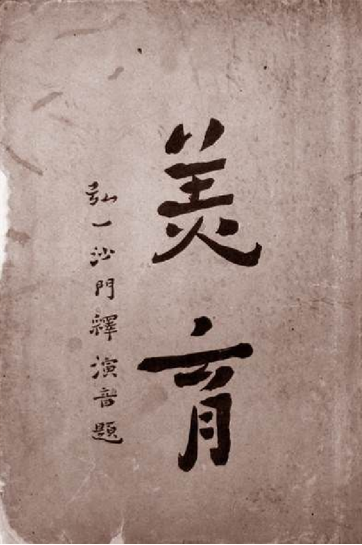 美育
弘一沙門釋演音題